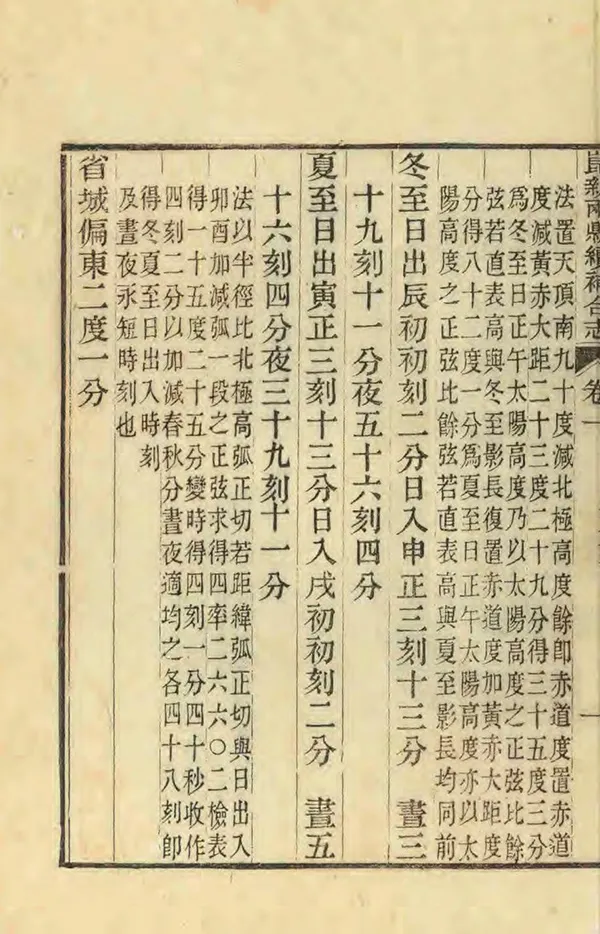 崑新兩縣續補合志 卷一 一
法置天頂南九十度減北極高度餘卽赤道度置赤道
度減黃赤大距二十三度二十九分得三十五度三分
爲冬至日正午太陽高度乃以太陽高度之正弦比餘
弦若直表高與冬至影長復置赤道度加黃赤大距度
分得八十二度一分爲夏至日正午太陽高度亦以太
陽高度之正弦比餘弦若直表高與夏至影長均同前
冬至日出辰初初刻二分日入申正三刻十三分　晝三
十九刻十一分夜五十六刻四分
夏至日出寅正三刻十三分日入戌初初刻二分　晝五
十六刻四分夜三十九刻十一分
法以半徑比北極高弧正切若距緯弧正切與日出入
卯酉加減弧一段之正弦求得四率二六六〇二檢表
得一十五度二十五分變時得四刻一分四十秒收作
四刻二分以加減春秋分晝夜適均之各四十八刻卽
得冬夏至日出入時刻
及晝夜永短時刻也
省城偏東二度一分